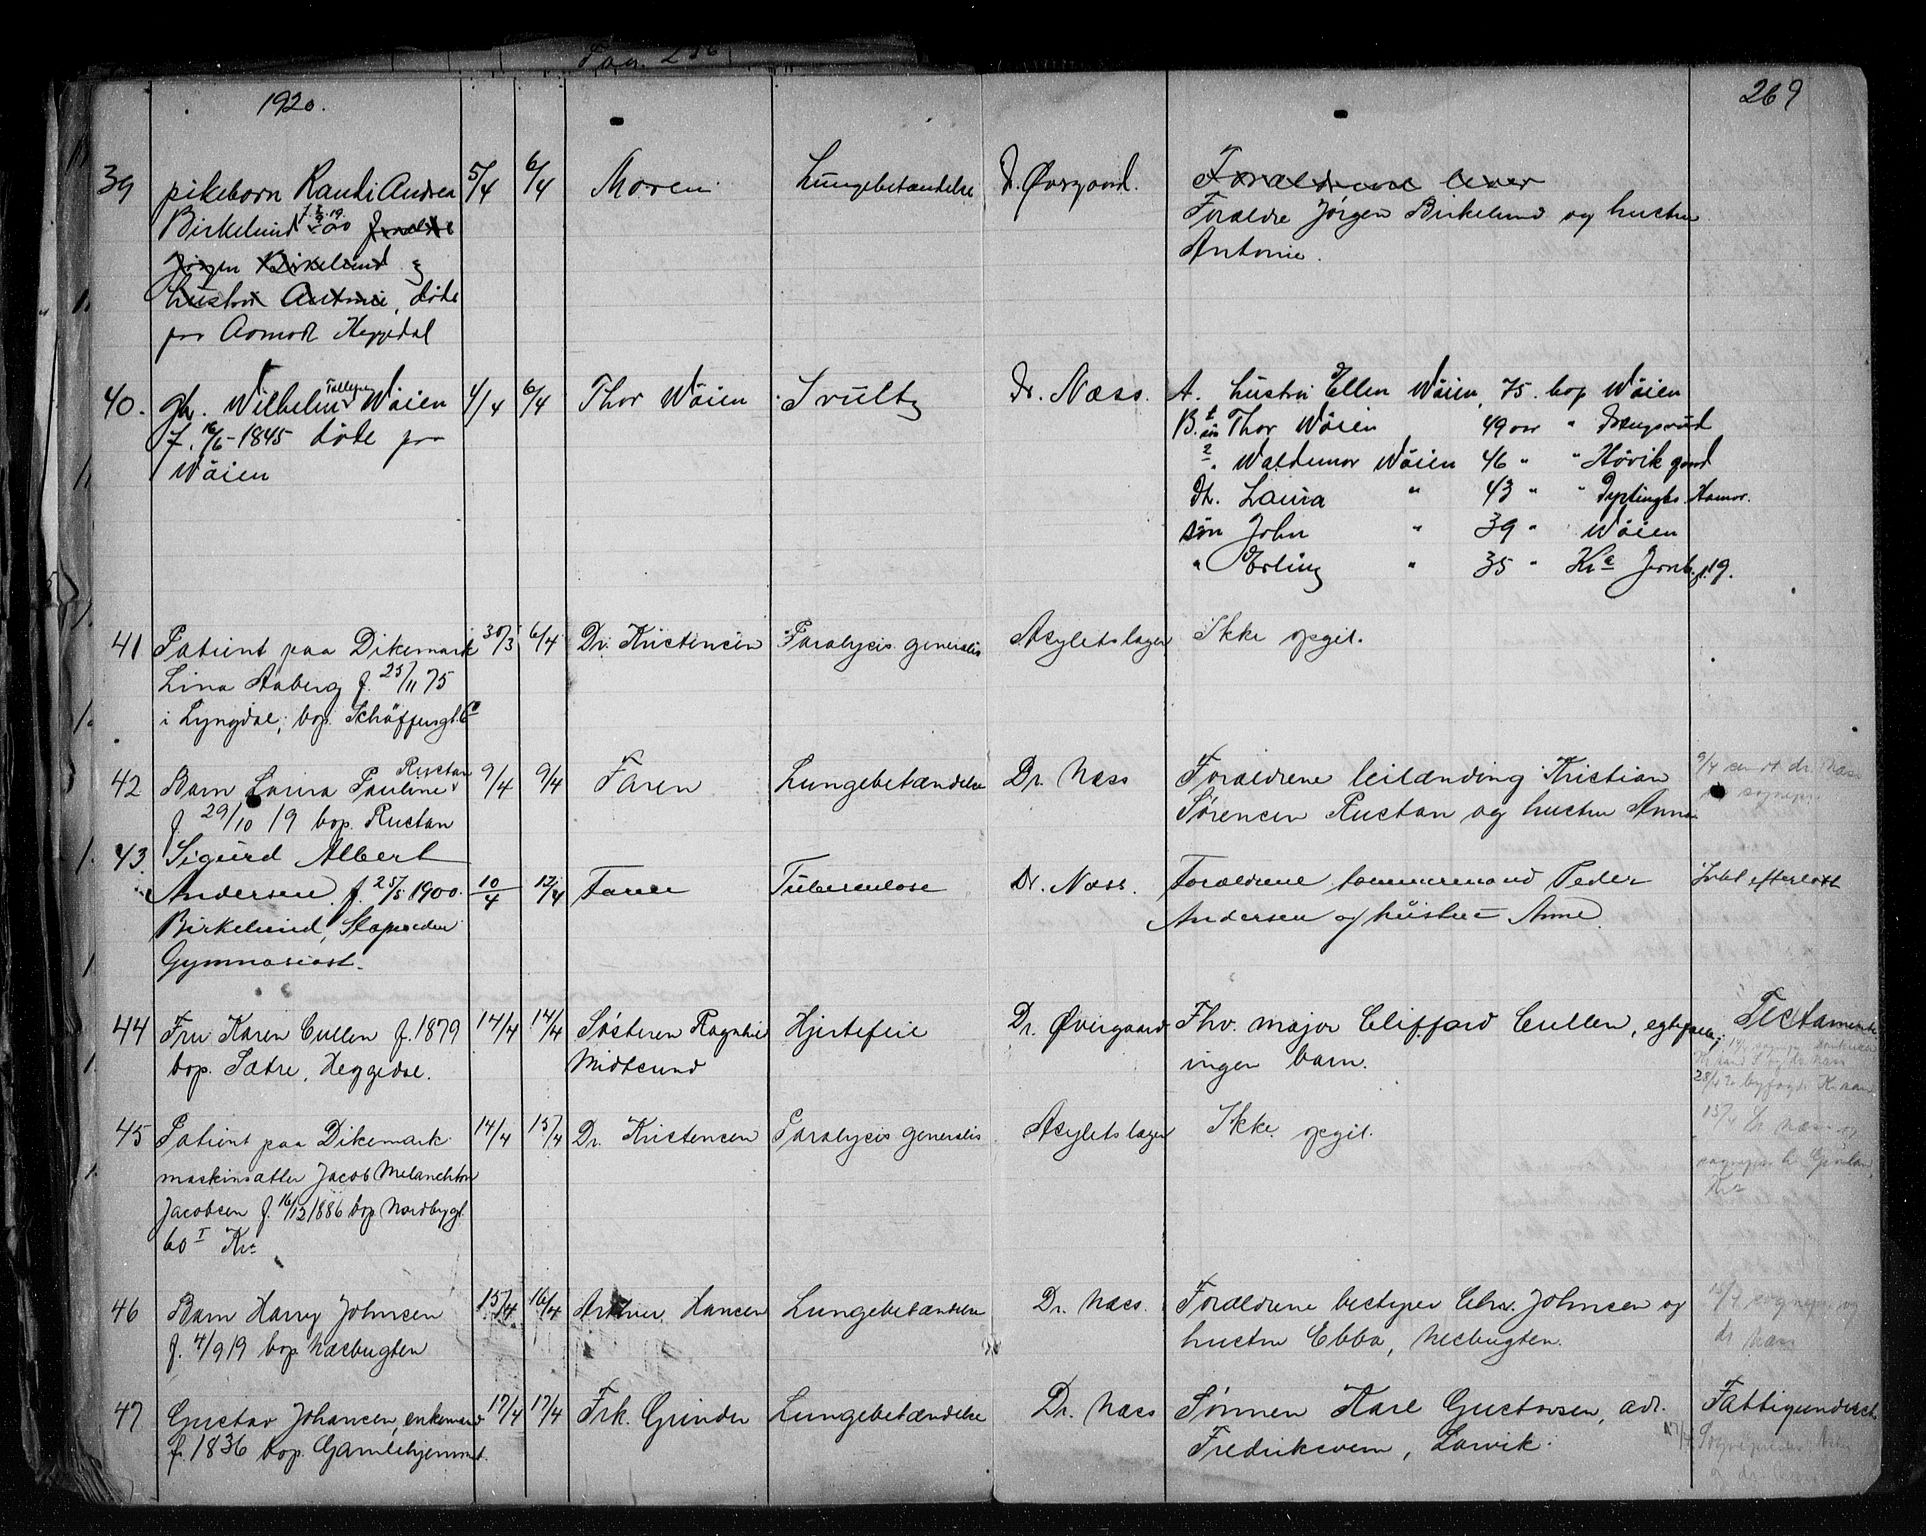 1920.
269
39
pikebarn Randi Andrea
Birkelund
Jørgen Birkelund og
hustru Antonie, døde
paa Aamodt Heggedal
5/4
6/4
Moren
Lungebetændelse
D. Øvrgaard.
Forældrene lever
Forældre Jørgen Birkelund og hustru
Antonie.
40.
gb. Wilhelm Tollefsen Wøien
f. 16/5-1845 døde paa
Wøien
4/4
6/4
Thor Wøien
Svulst
Dr. Næss.
A. hustru Ellen Wøien, 75. bop Wøien
B. 1 søn Thor Wøien 49 aar "
2 " Waldemar Wøien 46 " " Høvik gaard
Dt. Laura " 43 " " Hamar.
søn John " 39 " Wøien
" Erling " 35 " Kra Jernb.g. 19.
41
Patient paa Dikemark
Lina Aaberg f. 25/11 75
i Lyngdal; bop. Schöffersgt. 6
30/3
6/4
Dr. Kristensen
Paralysis generalis
Asylets læger
Ikke opgit.
42
Barn Laura Pauline Rustan
f 29/10 19 bop. Rustan
9/4
9/4
Faren
Lungebetændelse
Dr. Næss
Forældrene leilænding Kristian
Sørensen Rustan og hustru Anna
9/4 dr. Næss
sognepr.
43.
Sigurd Albert
Andersen. f. 25/5 1900.
Birkelund, Slependen
Gymnasiast.
10/4
12/4
Faren
Tuberculose
Dr. Næss.
Forældrene tømmermand Peder
Andersen og hustru Anne.
Intet efterlatt
44
Fru Karen Cullen f. 1879
bop. Sætre, Heggedal.
14/4
14/4
Søsteren Ragnhild
Midtsund
Hjertefeil
Dr. Øvergaard
Fhv. major Clifford Cullen, egtefælle,
ingen barn.
Testamente
45
Patient paa Dikemark
maskinsætter Jacob Melanchton
Jacobsen f. 16/12 1886 bop Nordbygt.
60 I Kra
14/4
15/4
Dr. Kristensen
Paralysis generalis
Asylets læger
Ikke opgit.
15/4 dr. Næss og
sognepr.
Kra
46
Barn Harry Johnsen
f. 4/9 19 bop Næsbugten
15/4
16/4
Arthur Hansen
Lungebetændelse
Dr. Næss.
Forældrene bestyrer Chr. Johnsen og
hustru Ebba, Nesbugten.
sognepr. og
dr. Næss
47
Gustav Johansen, enkemand
f. 1836 bop. Gamlehjemmet.
17/4
17/4
Frk. Grinder
Lungebetændelse
Dr. Næss
Sønnen Karl Gustavsen, adr.
Fredriksvern, Larvik.
Fattigunderst.
17/4 Sognepresten Asker